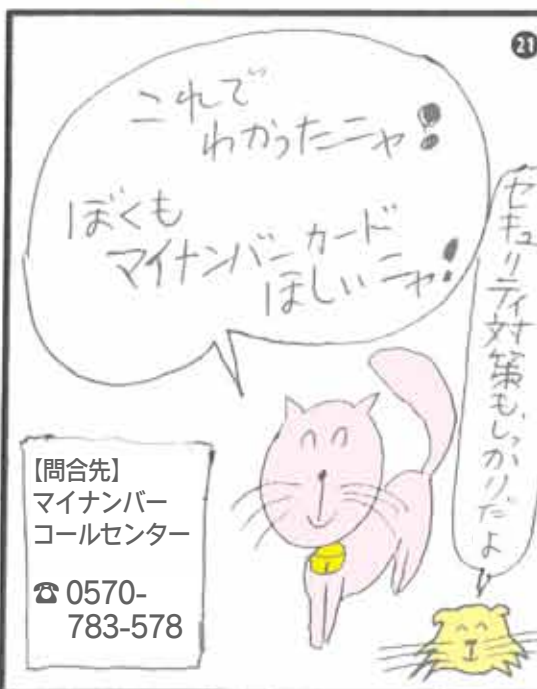 21
これで
わかったニャ!
ぼくも
マイナンバーカード
ほしいニャ!
セキュリティ対策も、しっかりだよ
【問合先】
マイナンバー
コールセンター
☎ 0570-
783-578